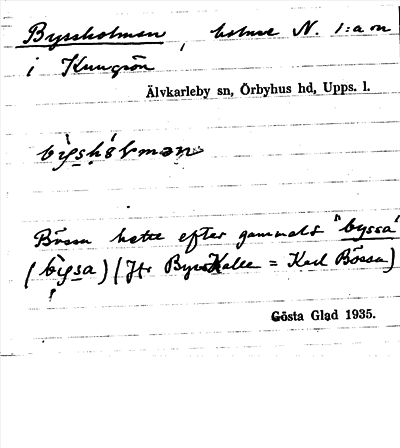 Byssholmen, holme N. 1:a on
i Kungsön
Älvkarleby sn, Örbyhus hd, Upps. l.
Bössa hette efter gammalt "byssa"
(bỳsa) (Jfr ByssKalle = Karl Bössa)
Gösta Glad 1935.